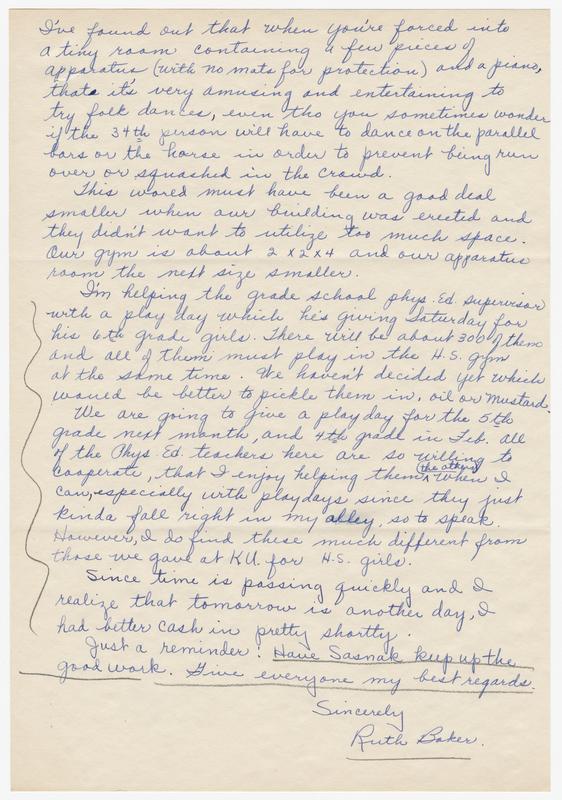 I've found out that when you're forced into
a tiny room containing a few pieces of
apparatus (with no mats for protection) and a piano,
thats it's very amusing and entertaining to
try folk dances, even tho you sometimes wonder
if the 34th person will have to dance on the parallel
bars or the horse in order to prevent being run
over or squashed in the crowd.
This world must have been a good deal
smaller when our building was erected and
they didn't want to utilize too much space.
Our gym is about 2 x 2 x 4 and our apparatus
room the next size smaller.
I'm helping the grade school phys. Ed. supervisor
with a play day which he's giving Saturday for
his 6th grade girls. There will be about 300 of them
and all of them must play in the H.S. gym
at the same time. We haven't decided yet which
would be better to pickle them in, oil or mustard.
We are going to give a playday for the 5th
grade next month, and 4th grade in Feb. All
of the Phys. Ed. teachers here are so willing to
cooperate, that I enjoy helping them (the others) when I
can, especially with playdays since they just
kinda fall right in my alley, so to speak.
However, I do find these much different from
those we gave at K.U. for H.S. girls.
Since time is passing quickly and I
realize that tomorrow is another day, I
had better cash in pretty shortly.
Just a reminder! Have Sasnak keep up the
good work. Give everyone my best regards.
Sincerely
Ruth Baker.